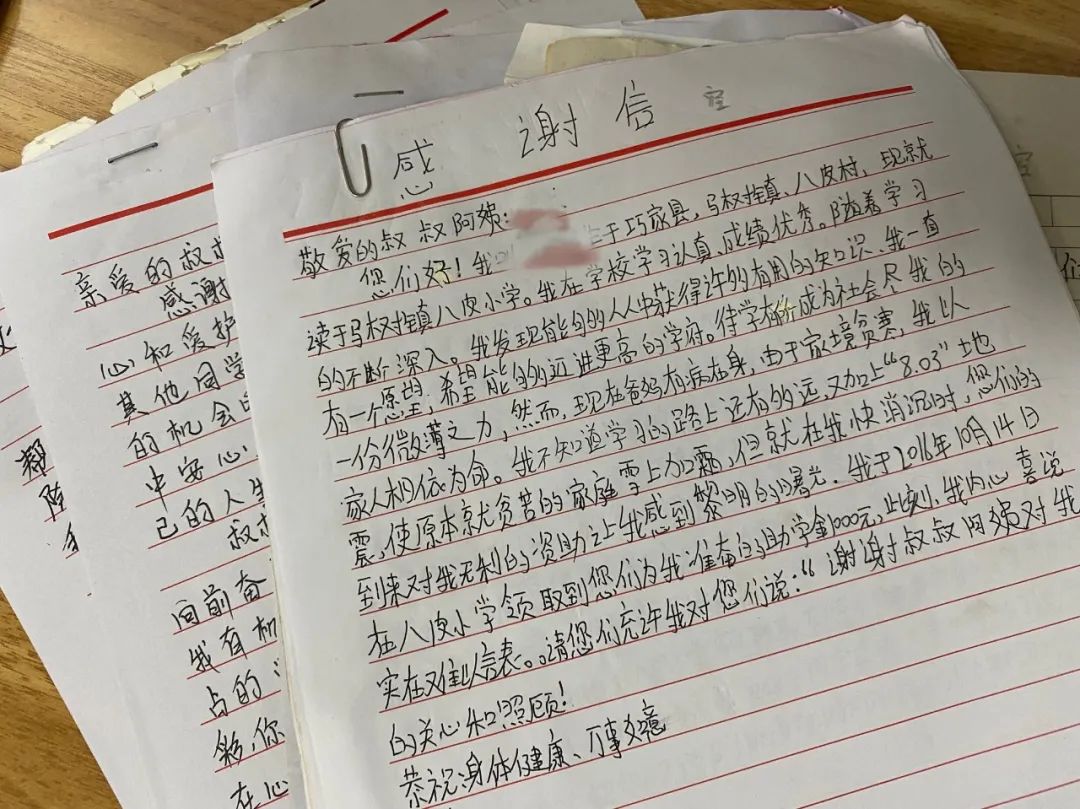 感谢信
敬爱的叔叔阿姨:
您们好!我 于巧家县,马树镇、八皮村,现就
读于马树镇八皮小学。我在学校学习认真、成绩优秀。随着学习
的不断深入。我发现能够的从中获得许多有用的知识、我一直
有一个愿望,希望能够的迈进更高的学府。待学 成为社会尽我的
一份微薄之力,然而,现在爸妈有病在身,由于家境贫寒,我以
家人相依为命。我不知道学习的路上还有多远,又加上“8.03”地
震,使原本就贫苦的家庭雪上加霜,但就在我快消沉时,您们的
到来对我无利的资助让我感到黎明的曙光.我于2016年10月14日
在八皮小学领取到您们为我准备的助学金1000元,此刻,我内心喜说
实在难以信表。请您们允许我对您们说:“谢谢叔叔阿姨对我
的关心和照顾!
恭祝:身体健康、万事如意
亲爱的叔叔
感谢
心和爱护
其他同学
的机会
中安心
己的人生
叔
向前奋
我有机
占的
彩,你
在心
帮